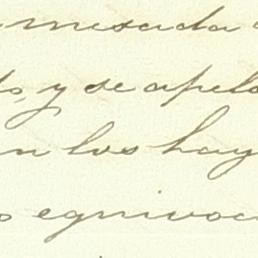 mesada
o, y se apela
n los hay
o equivoca